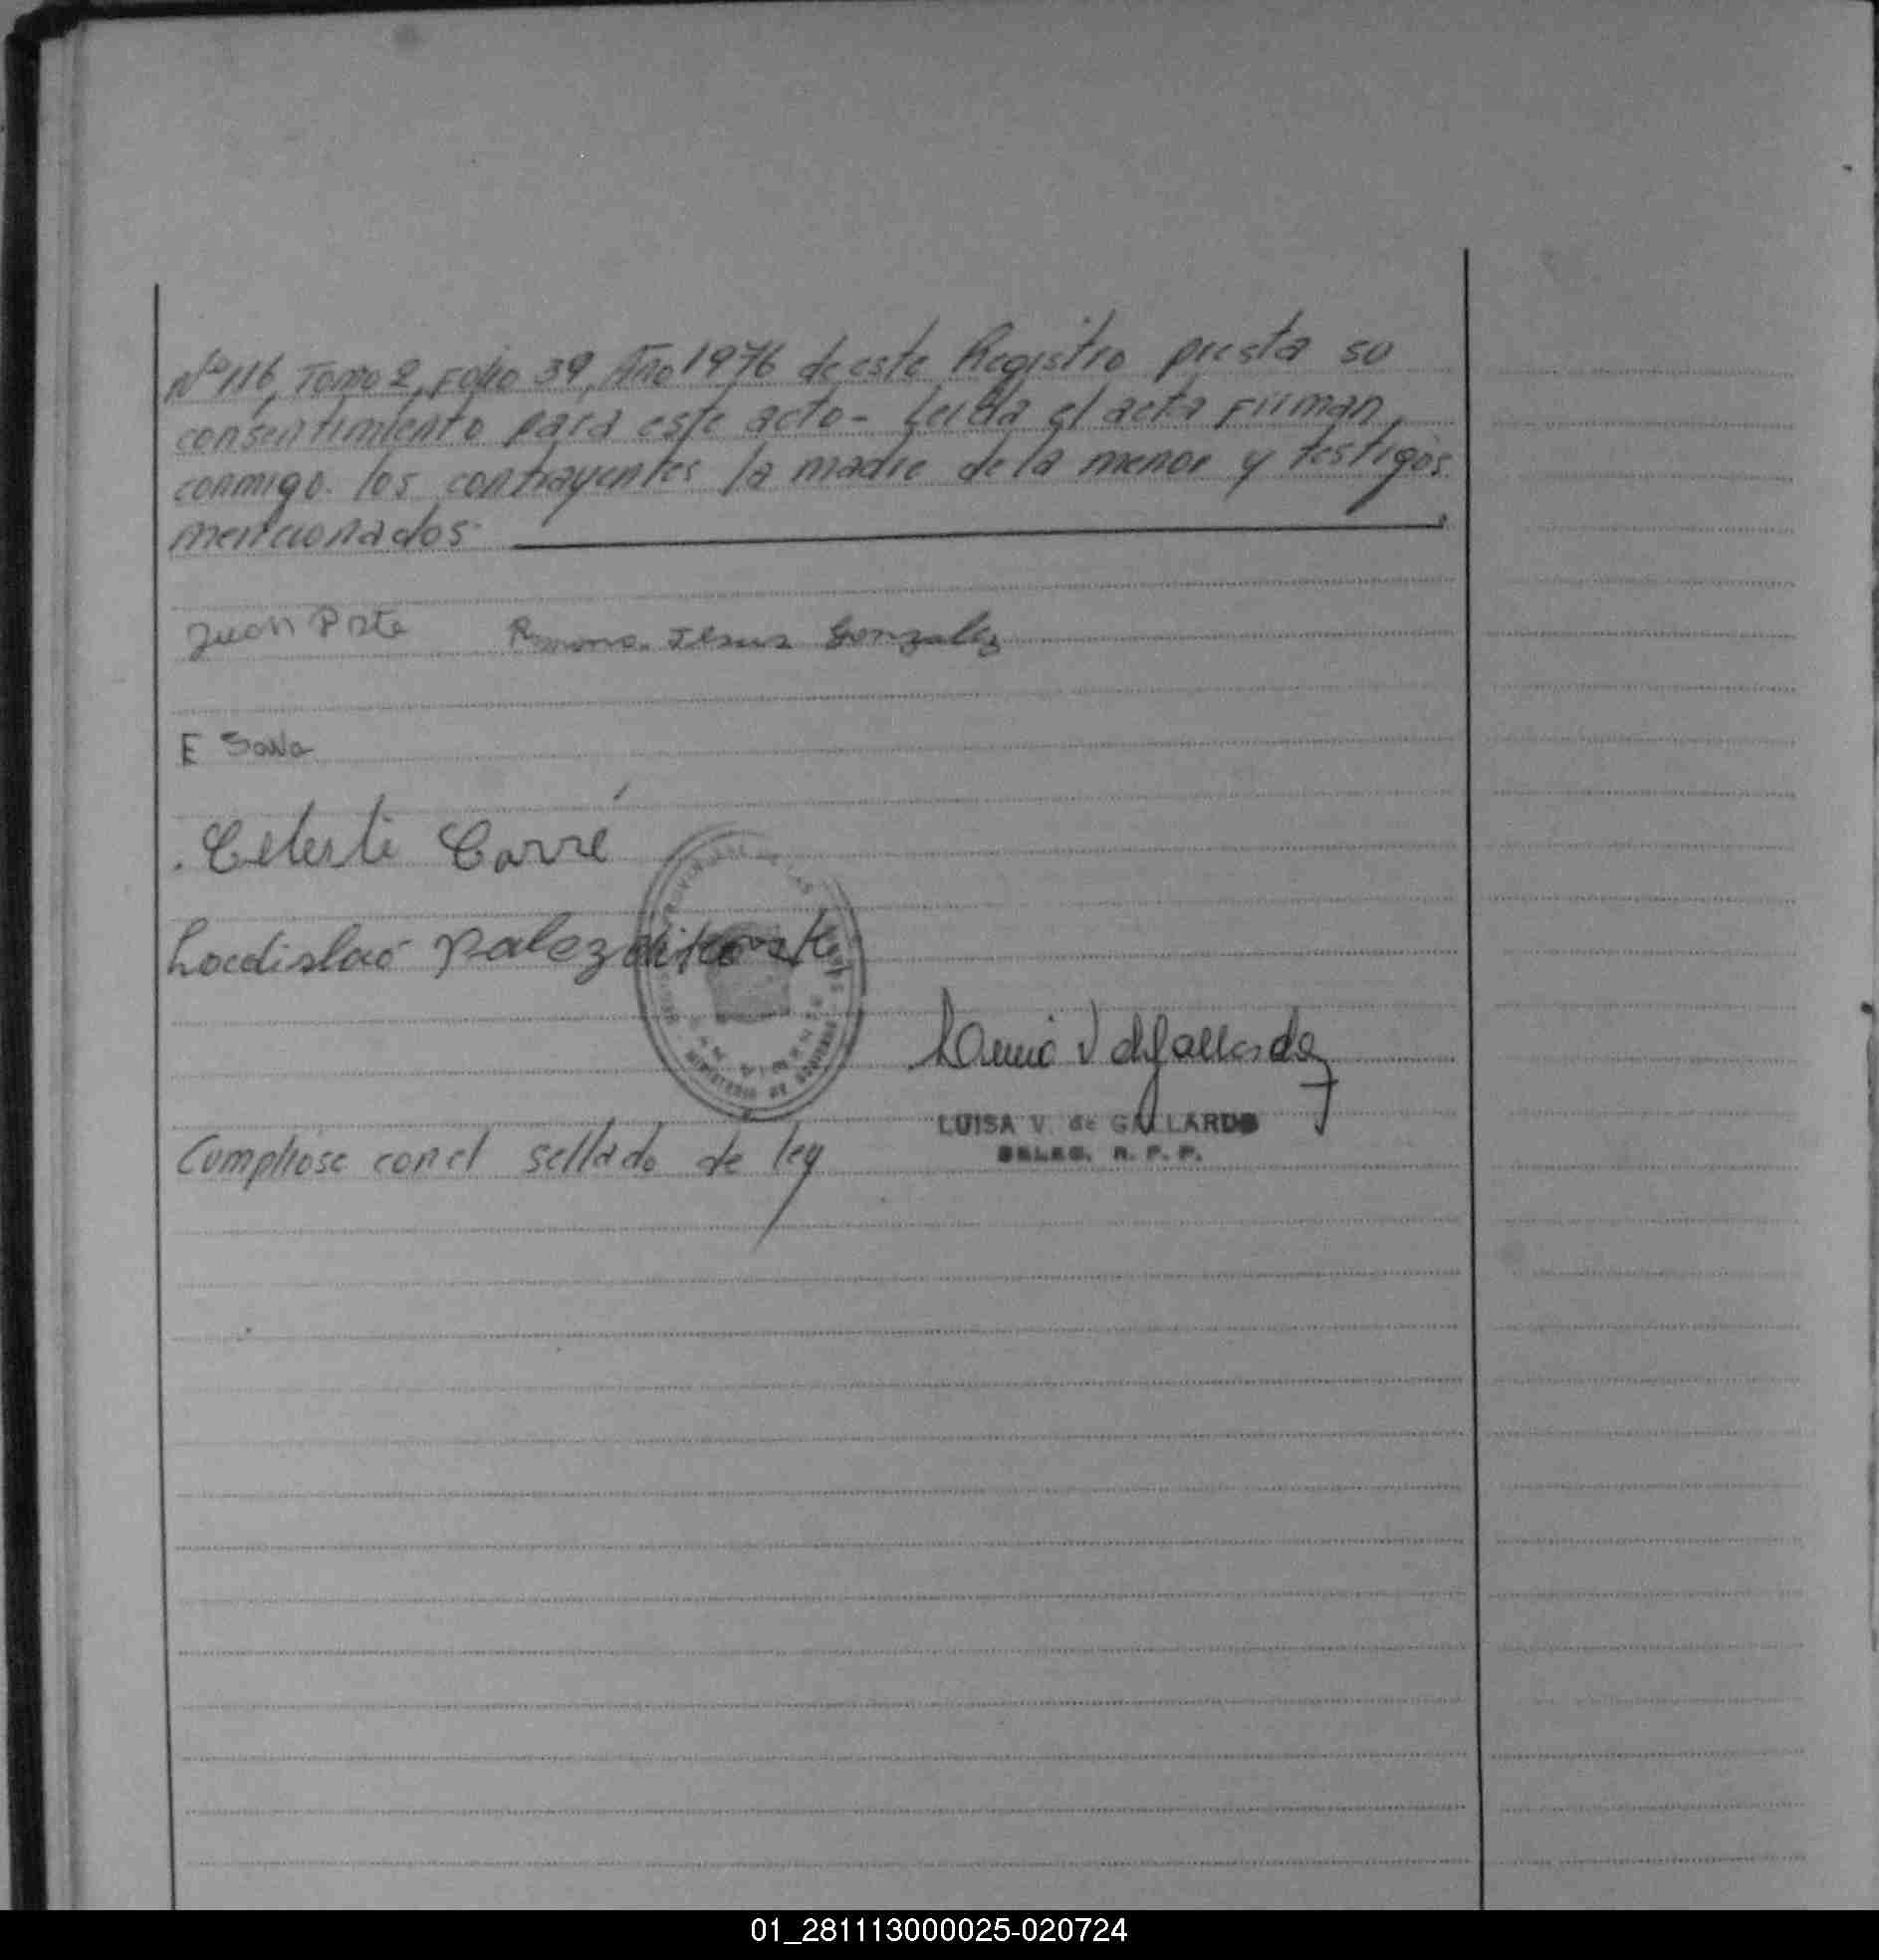 Nº 116, Tomo 2, Folio 39, Año 1976 de este Registro presta su
consentimiento para este acto - Leida el acta Firman,
conmigo los contrayentes la madre de la menor y testigos
mencionados
Juan Pste Ramona Jesus Gonzalez
E Sawa
Celeste Carré
Ladislao
MINISTERIO DE GOBIERNO
LUISA V. de GALLARDO
DELEG. R. P. P.
Cumpliose con el sellado de ley
01_281113000025-020724